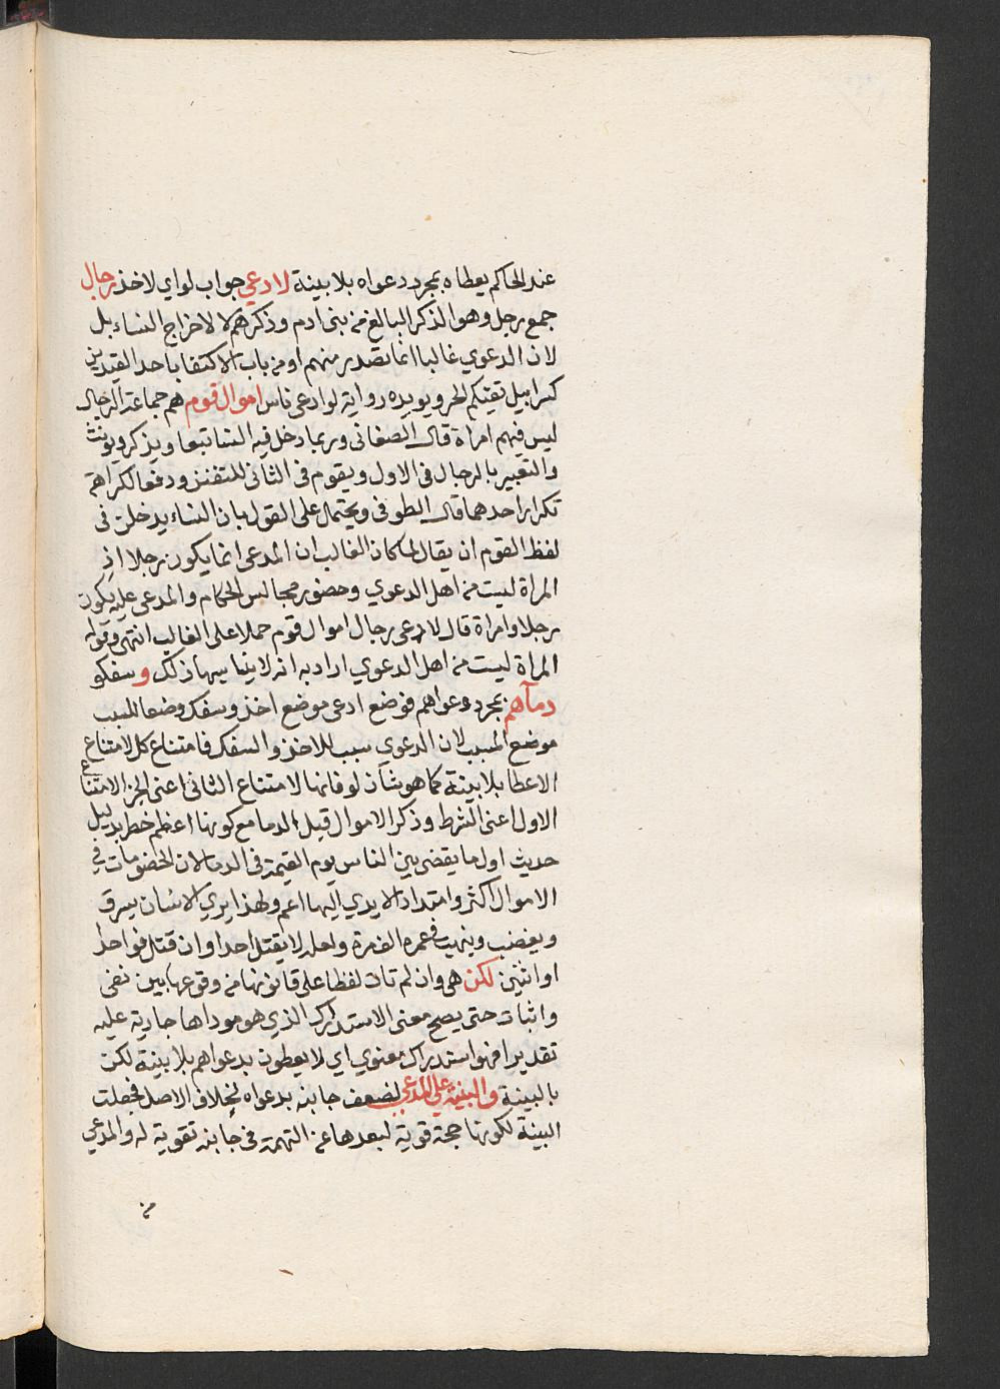 عند الحاكم يعطاه بمجرد دعواه بلا بينة لادعي جواب لو اي لاخذ رجال
جمع رجل وهو الذكر البالغ من بنى ادم وذكرهم لا لاخراج النساء بل
لان الدعوي غالبا انما تصدر منهم او من باب الاكتفا باحد القيدين
كسرابيل تقيكم الحر ويويده رواية لو ادعى ناس اموال قوم هم جماعة الرجال
ليس فيهم امراة قال الصغانى وربما دخل فيه النسا تبعا ويذكر ويونث
والتعبير بالرجال فى الاول وبقوم فى الثانى للتفنن ودفعا لكراهة
تكرار احدهما قال الطوفى ويحتمل على القول بان النساء يدخلن فى
لفظ القوم ان يقال لما كان الغالب ان المدعى انما يكون رجلا اذ
المراة ليست من اهل الدعوي وحضور مجالس الحكام والمدعى عليه يكون
رجلا وامراة قال لادعى رجال اموال قوم حملا على الغالب انتهى وقوله
المراة ليست من اهل الدعوي اراد به انه لا يناسبها ذلك وسفكو
دمآهم بمجرد دعواهم فوضع ادعى موضع اخذ وسفك وضعا للسبب
موضع المسبب لان الدعوي سبب للاخذ والسفك فامتناع كل لامتناع
الاعطا بلا بينة كما هو شان لو فانها لامتناع الثانى اعنى الجزا لامتناع
الاول اعنى الشرط وذكر الاموال قبل الدما مع كونها اعظم خطر بدليل
حديث اول ما يقضى بين الناس يوم القيمة فى الدما لان الخصومات في
الاموال اكثر وامتداد الايدي اليها اعم ولهذا يري الانسان يسرق
ويغضب وينهب فى عمره المرة ولعله لا يقتل احدا وان قتل فواحدا
او اثنين لكن هى وان لم تات لفظا على قانونها من وقوعها بين نفى
واثبات حتى يصح معنى الاستدراك الذي هو موداها جارية عليه
تقديرا فهو استدراك معنوي اي لا يعطون بدعواهم بلا بينة لكن
بالبينة والبينة على المدعي لضعف جانبه بدعواه بخلاف الاصل فجعلت
البينة لكونها حجة قوية لبعدها عن التهمة فى جانبه تقوية له والمدعي
من